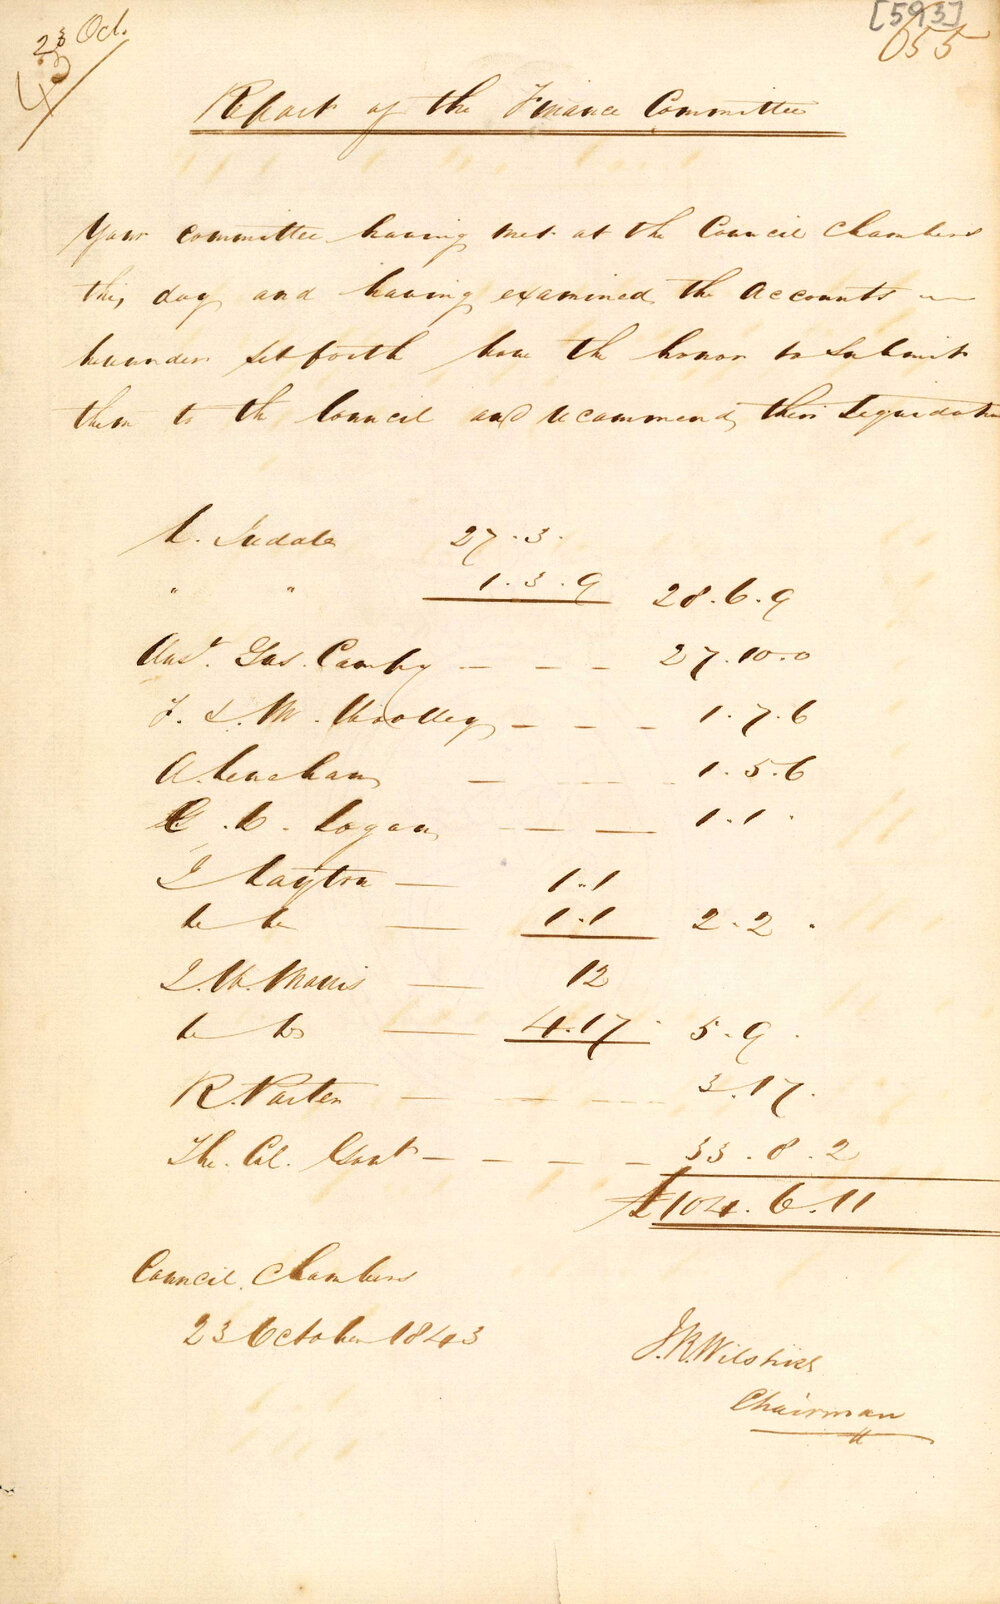 23 Oct.
43
[593]
655
Report of the Finance Committee
Your committee having met at the Council Chambers
this day and having examined the Accounts
hereunder set forth have the honor to submit
them to the Council and recommend their Liquidation
27.3.
" " 1.3.9 28.6.9
Aust. Gas. Compy — — — 27.10.0
F. & M. Woolley — — — 1.7.6
A. Lenehan — — — 1.5.6
Logan — — — 1.1.
Clayton — 1.1
Do Do — 1.1 2.2.
Morris — 12
Do Do — 4.17. 5.9.
R. Porter — — — 3.17.
The Col. Govt — — — — 33.8.2
£104.6.11
Council Chambers
23 October 1843
J. R. Wilshire
Chairman